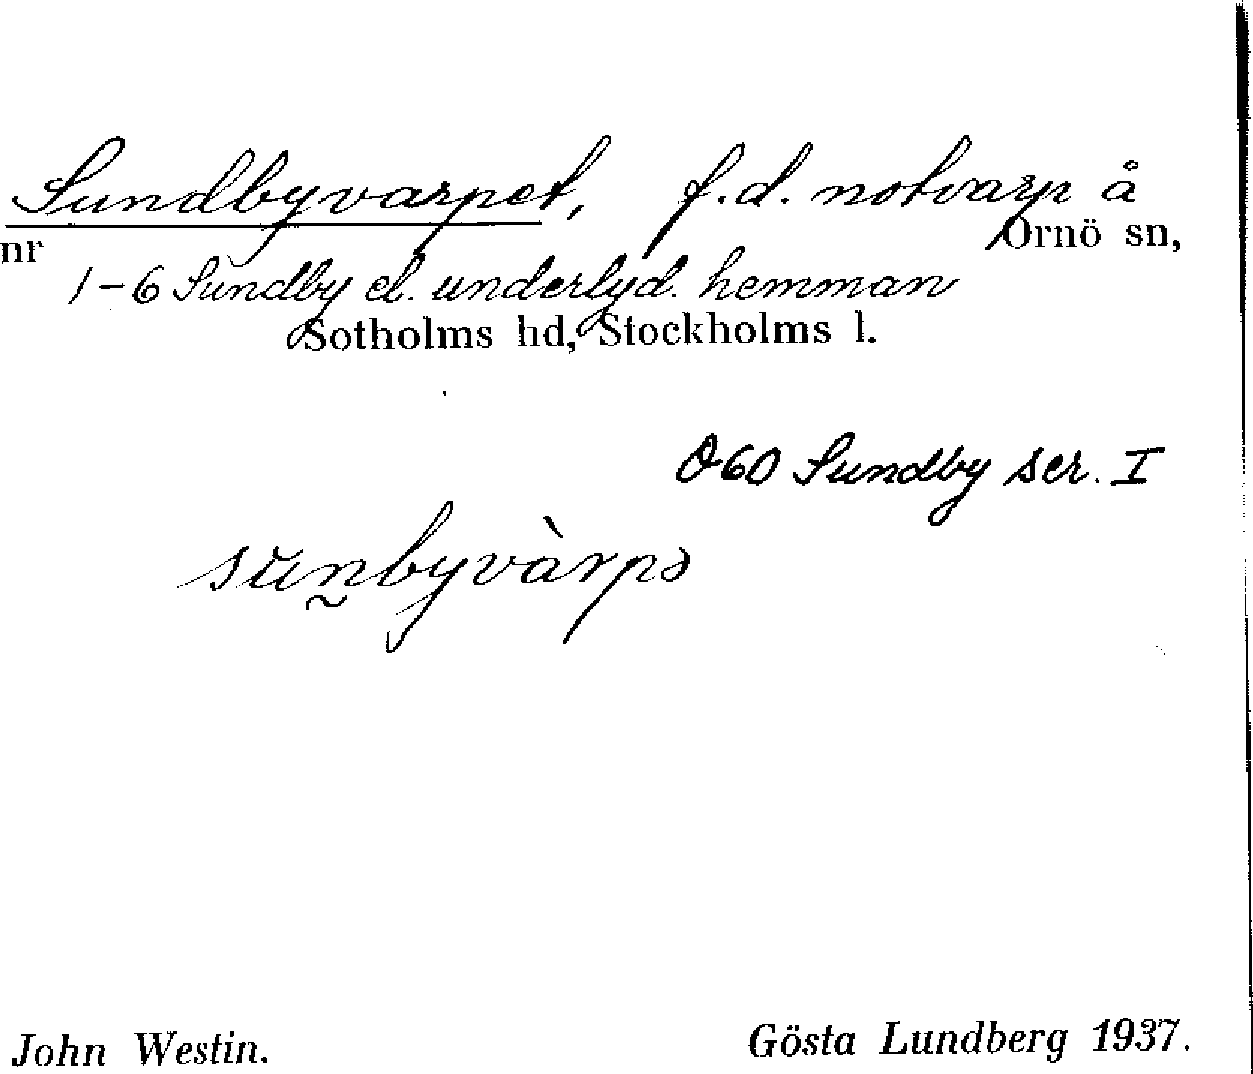 Sundbyvarpet, f.d. notvarp å
nr Ornö sn,
1-6 Sundby el. underlyd. hemman
Sotholms hd, Stockholms l.
O 60 Sundby ser. I
sŭn̰byvàrpə
John Westin. Gösta Lundberg 1937.